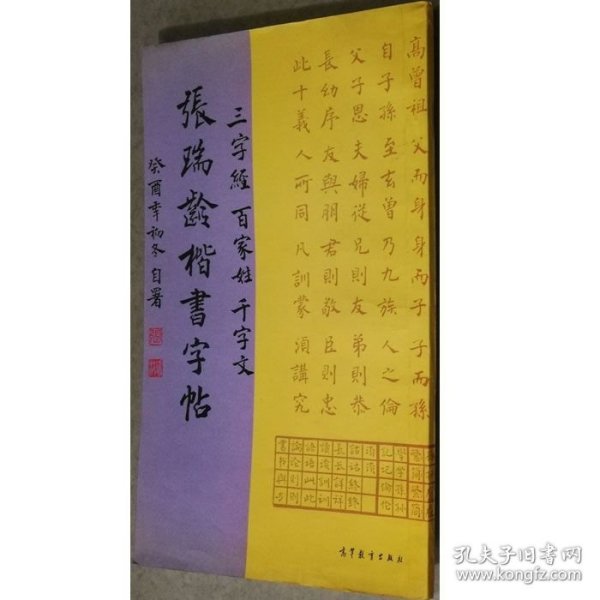 高曾祖 父而身 身而子 子而孫
自子孫 至玄曾 乃九族 人之倫
父子恩 夫婦從 兄則友 弟則恭
長幼序 友與朋 君則敬 臣則忠
此十義 人所同 凡訓蒙 須講究
三字經 百家姓 千字文
張瑞齡楷書字帖
癸酉年初冬自署
學学孫孙
記记倫伦
須须
長长詳详
書书與与
高等教育出版社
孔夫子旧书网
www.kongfz.com